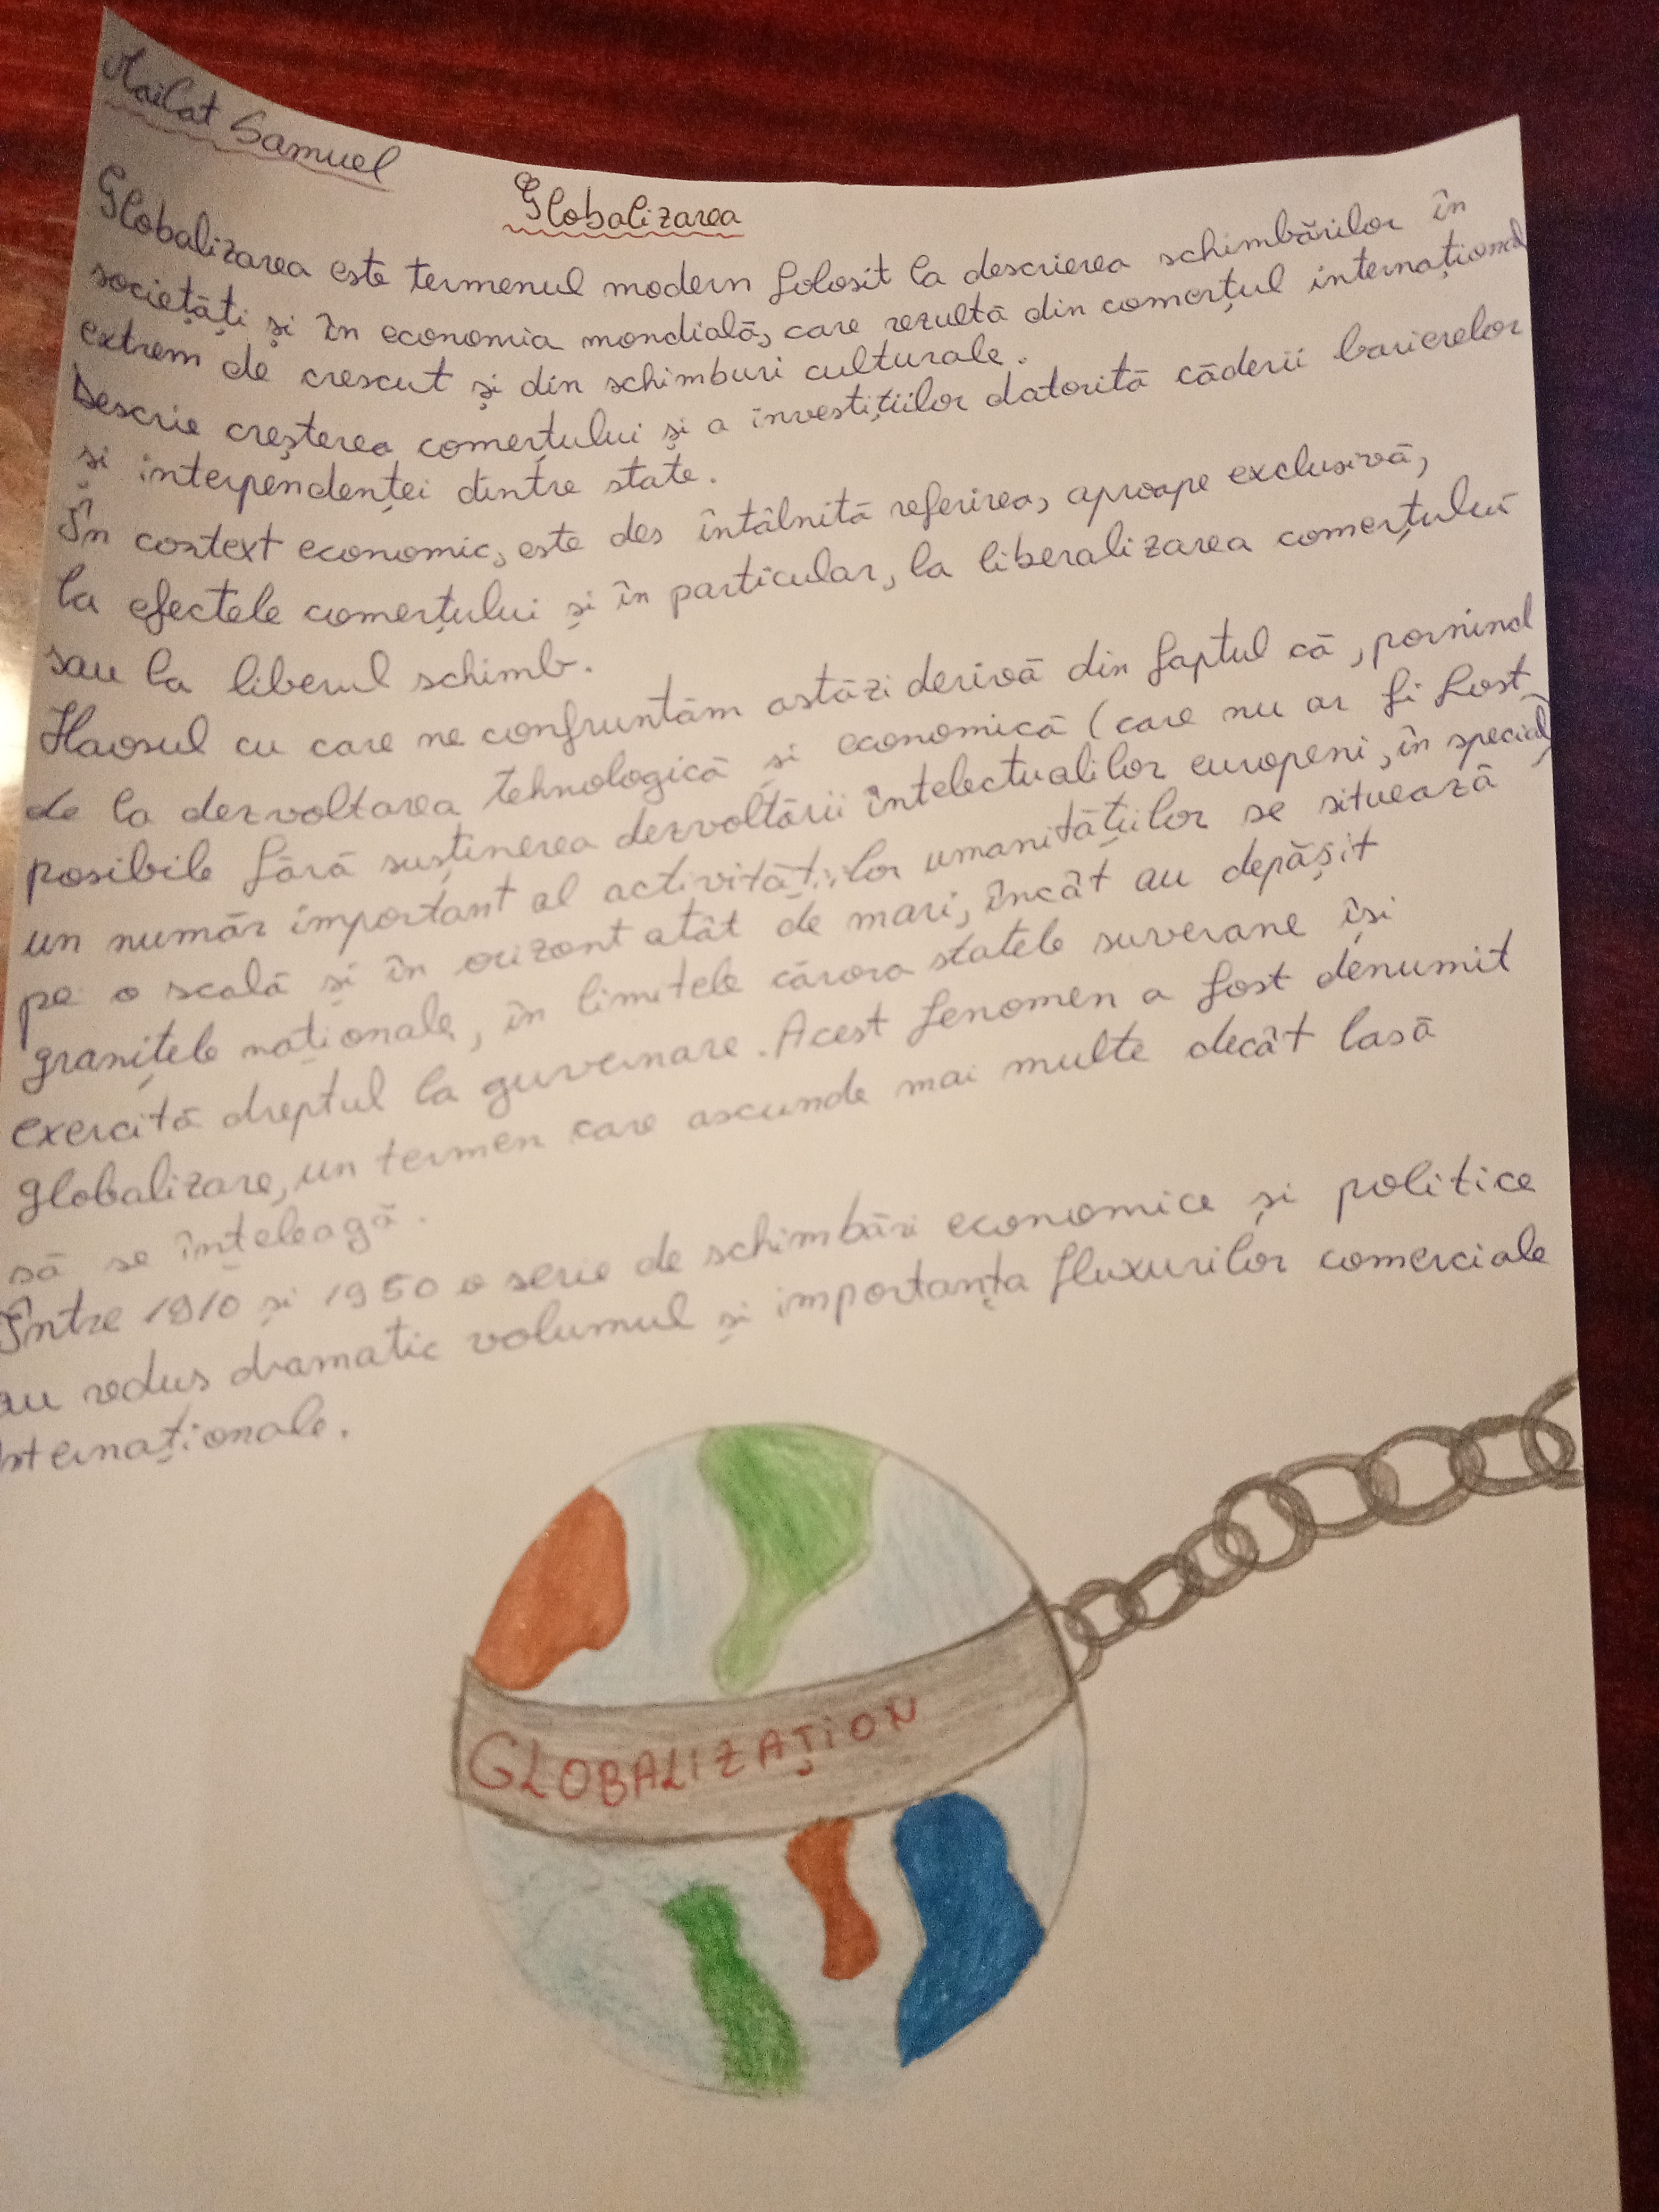 Mailat Samuel
Globalizarea
Globalizarea este termenul modern folosit la descrierea schimbărilor în
societăți și în economia mondială, care rezultă din comerțul internațional
extrem de crescut și din schimburi culturale.
Descrie creșterea comerțului și a investițiilor datorită căderii barierelor
și interpendenței dintre state.
În context economic, este des întâlnită referirea, aproape exclusivă,
la efectele comerțului și în particular, la liberalizarea comerțului
sau la liberul schimb.
Haosul cu care ne confruntăm astăzi derivă din faptul că, pornind
de la dezvoltarea tehnologică și economică (care nu ar fi fost
posibile fără susținerea dezvoltării intelectualilor europeni, în special)
un număr important al activităților umanitățiilor se situează
pe o scală și în orizont atât de mari, încât au depășit
granițele naționale, în limitele cărora statele suverane își
exercită dreptul la guvernare. Acest fenomen a fost denumit
globalizare, un termen care ascunde mai multe decât lasă
să se înțeleagă.
Între 1910 și 1950 o serie de schimbări economice și politice
au redus dramatic volumul și importanța fluxurilor comerciale
internaționale.
GLOBALIZAȚION